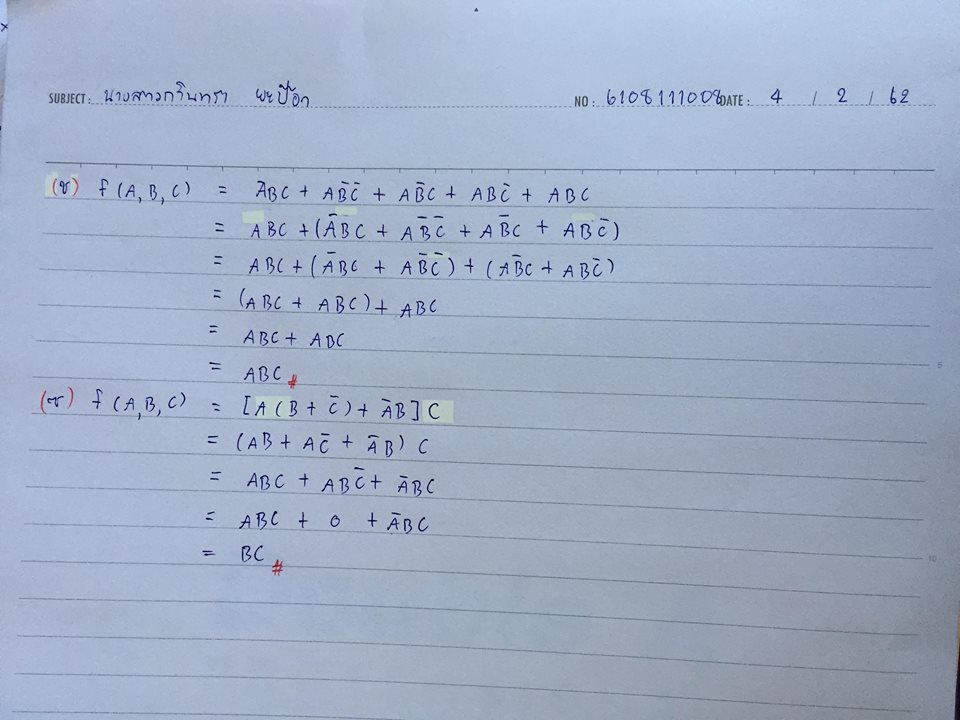 SUBJECT : นางสาวกวินทรา พะปีอา NO : 6108111008 DATE : 4 / 2 / 62
(ช) f (A, B, C) = A̅BC + AB̅C̅ + AB̅C + ABC̅ + ABC
= ABC + (A̅BC + AB̅C̅ + AB̅C + ABC̅)
= ABC + (A̅BC + AB̅C̅) + (AB̅C + ABC̅)
= (ABC + ABC) + ABC
= ABC + ABC
5
= ABC #
f (A, B, C) = [A (B + C̅) + A̅B] C
= (AB + AC̅ + A̅B) C
= ABC + ABC̅ + A̅BC
= ABC + 0 + A̅BC
= BC #
10